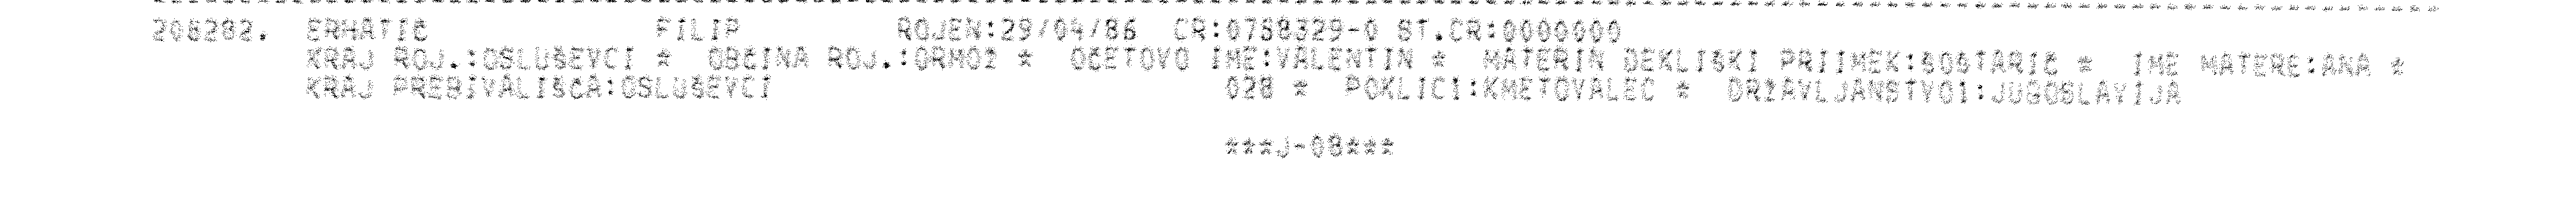 206282. ERHATIČ FILIP ROJEN:29/04/86 CR:0758329-0 ST.CR:0000000
KRAJ ROJ.:OSLUŠEVCI * OBČINA ROJ.:ORMOŽ * OČETOVO IME:VALENTIN * MATERIN DEKLIŠKI PRIIMEK:ŠOŠTARIČ * IME MATERE:ANA *
KRAJ PREBIVALIŠČA:OSLUŠEVCI 028 * POKLICI:KMETOVALEC * DRŽAVLJANSTVO1:JUGOSLAVIJA
***J-08***